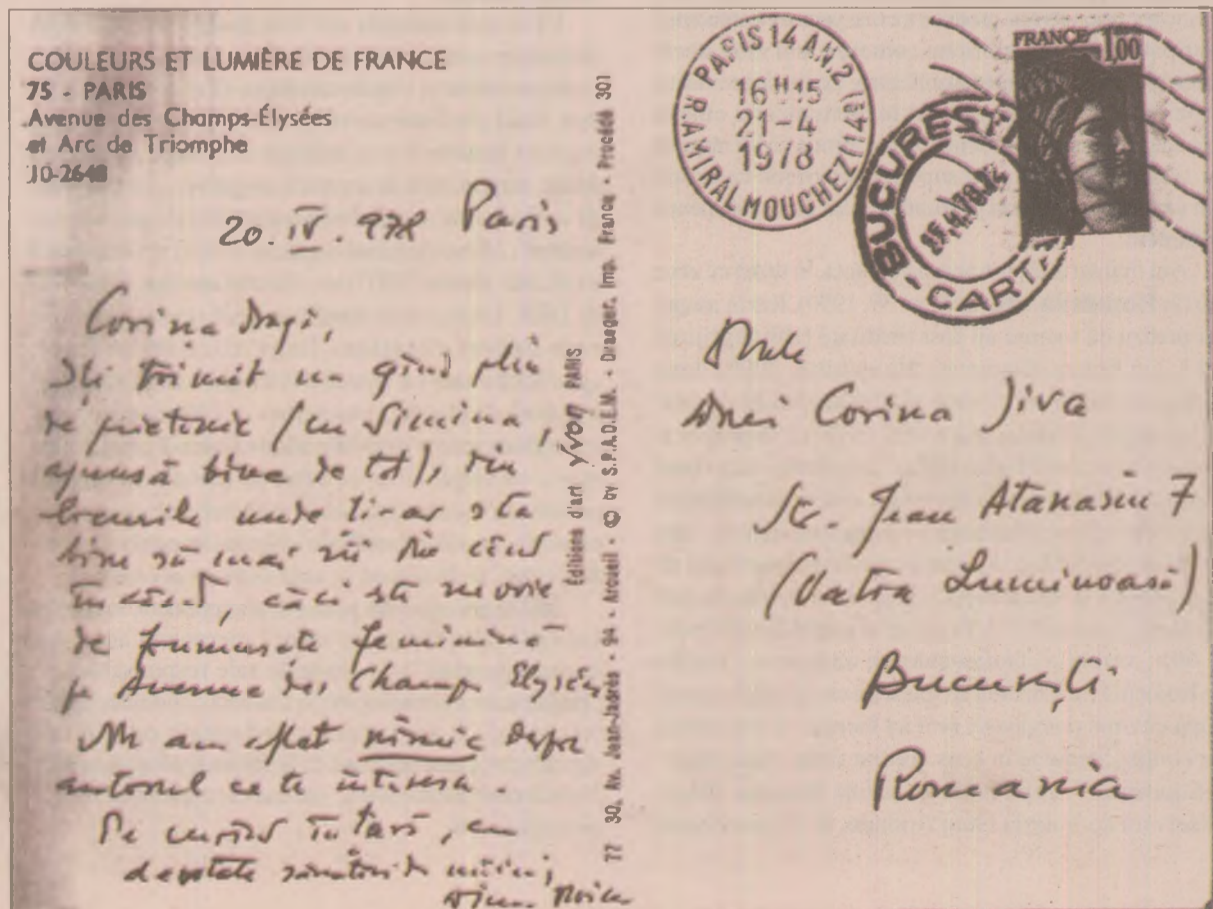 COULEURS ET LUMIÈRE DE FRANCE
75 - PARIS
Avenue des Champs-Élysées
et Arc de Triomphe
10-2648
20. IV. 978 Paris
Corina dragă,
Îți trimit un gînd plin
de prietenie (cu Simina,
ajunsă bine de tot), din
locurile unde ți-ar sta
bine să mai vii din cînd
în cînd, căci stă nevoie
de frumusețe feminină
pe Avenue des Champs Elysées.
Nu am aflat nimic despre
autorul ce te interesa.
Pe curînd în țară, cu
devotate sărutări de mîini,
Dinu Noica
Éditions d'art YVON PARIS
77 30, Av. Jean-Jaurès - 94 - Arcueil - © by S.P.A.D.E.M. - Draeger, Imp. France - Procédé 301
PARIS 14 AN. 2 (14E)
16H15
21-4
1978
R. AMIRAL MOUCHEZ
BUCUREŞTI
25.4.78
CARTARE
FRANCE 1,00
Dnei Corina Jiva
Str. Jean Atanasiu 7
(Vatra Luminoasă)
Bucureşti
Romania